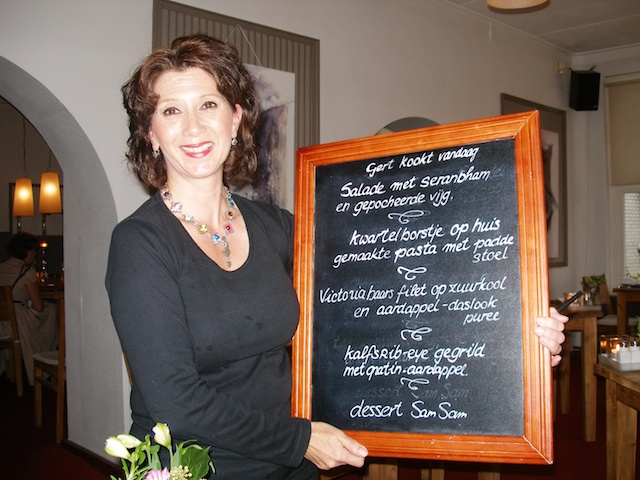 Gert kookt vandaag
Salade met seranbham
en gepocheerde vijg.
kwartelborstje op huis
gemaakte pasta met padde
stoel
Victoriabaars filet op zuurkool
en aardappel-daslook
puree
kalfsRib-eye gegrild
met gratin-aardappel.
dessert Sam Sam